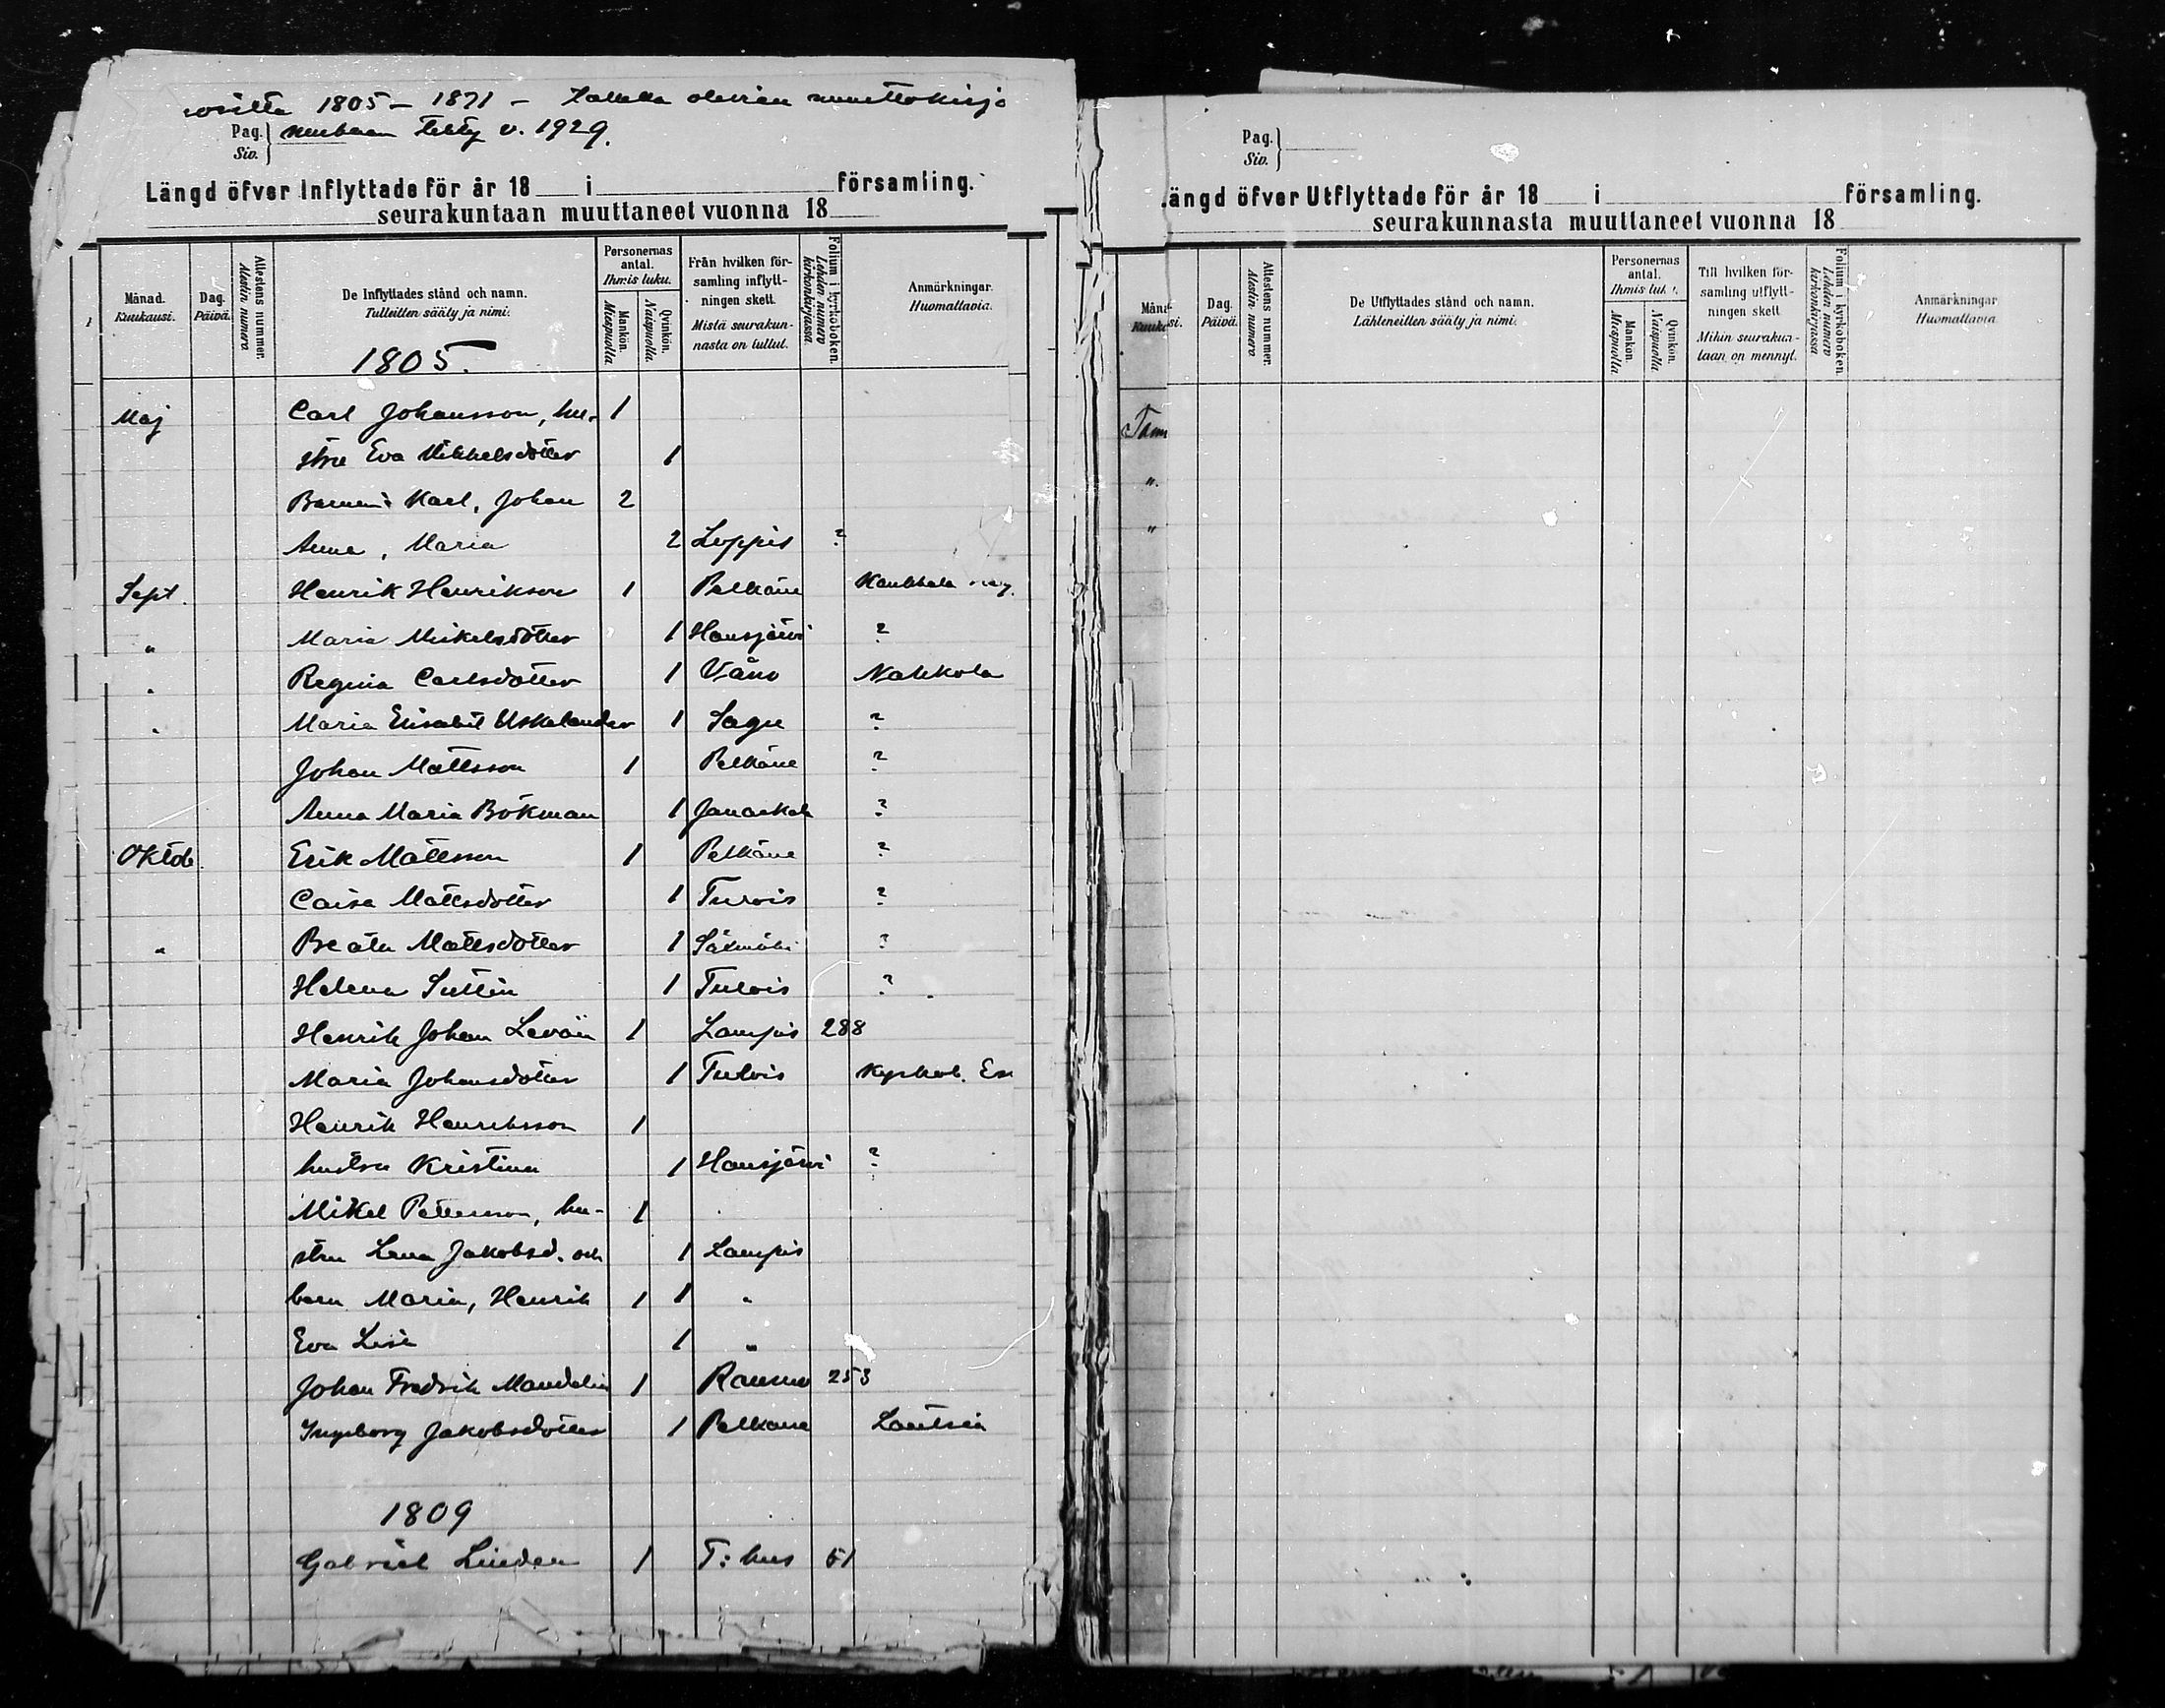 vosilta 1805 - 1871 - olevien muuttokirja
mukaan tehty v. 1929.
Pag.
Siv.
Längd öfver Inflyttade för år 18 i församling.
seurakuntaan muuttaneet vuonna 18
Månad. Kuukausi.
Dag. Päivä.
Attestens nummer. Atestin numero
De Inflyttades stånd och namn.
Tulleitten sääty ja nimi.
Personernas antal. Ihmis luku.
Mankön. Miespuolia.
Qvinkön. Naispuolia.
Från hvilken församling inflyttningen skett.
Mistä seurakunnasta on tullut.
Folium i kyrkoboken. Lehden numero kirkonkirjassa.
Anmärkningar. Huomattavia.
1805.
Maj Carl Johansson, hu- 1
stru Eva Mikkelsdotter 1
Barnen: Karl, Johan 2
Anna, Maria 2 Loppis ?
Sept. Henrik Henrikson 1 Pelkäne Kaukkala
" Maria Mikelsdotter 1 Hausjärvi ?
" Regina Carlsdotter 1 Vånå Nahkola
" Maria Elisabet Uskelander 1 Sagu ?
Johan Mattsson 1 Pelkäne ?
Anna Maria Bökman 1 Janakkala ?
Oktob. Erik Mattsson 1 Pelkäne ?
Caisa Mattsdotter 1 Tulois ?
" Beata Mattsdotter 1 Sääxmäki ?
Helena Suttin 1 Tulois ?
Henrik Johan Levän 1 Lampis 288
Maria Johansdotter 1 Tulois Kyrkob. Ex
Henrik Henriksson 1
hustru Kristina 1 Hausjärvi ?
Mikel Pettersson, hu- 1
stru Lena Jakobsd. och 1 Lampis
barn Maria, Henrik 1 1 "
Eva Lisa 1 "
Johan Fredrik Mandelin 1 Raumo 253
Ingeborg Jakobsdotter 1 Pelkäne Lautsia
1809
Gabriel Linden 1 T:hus 51
Pag.
Siv.
ängd öfver Utflyttade för år 18 i församling.
seurakunnasta muuttaneet vuonna 18
Måna Kuukausi.
Dag. Päivä.
Attestens nummer. Atestin numero
De Utflyttades stånd och namn.
Lähteneitten sääty ja nimi.
Personernas antal. Ihmis luku.
Mankön. Miespuolia.
Qvinkön. Naispuolia
Till hvilken församling utflyttningen skett
Mihin seurakuntaan on mennyt.
Folium i kyrkoboken. Lehden numero kirkonkirjassa
Anmärkningar Huomattavia
"
"